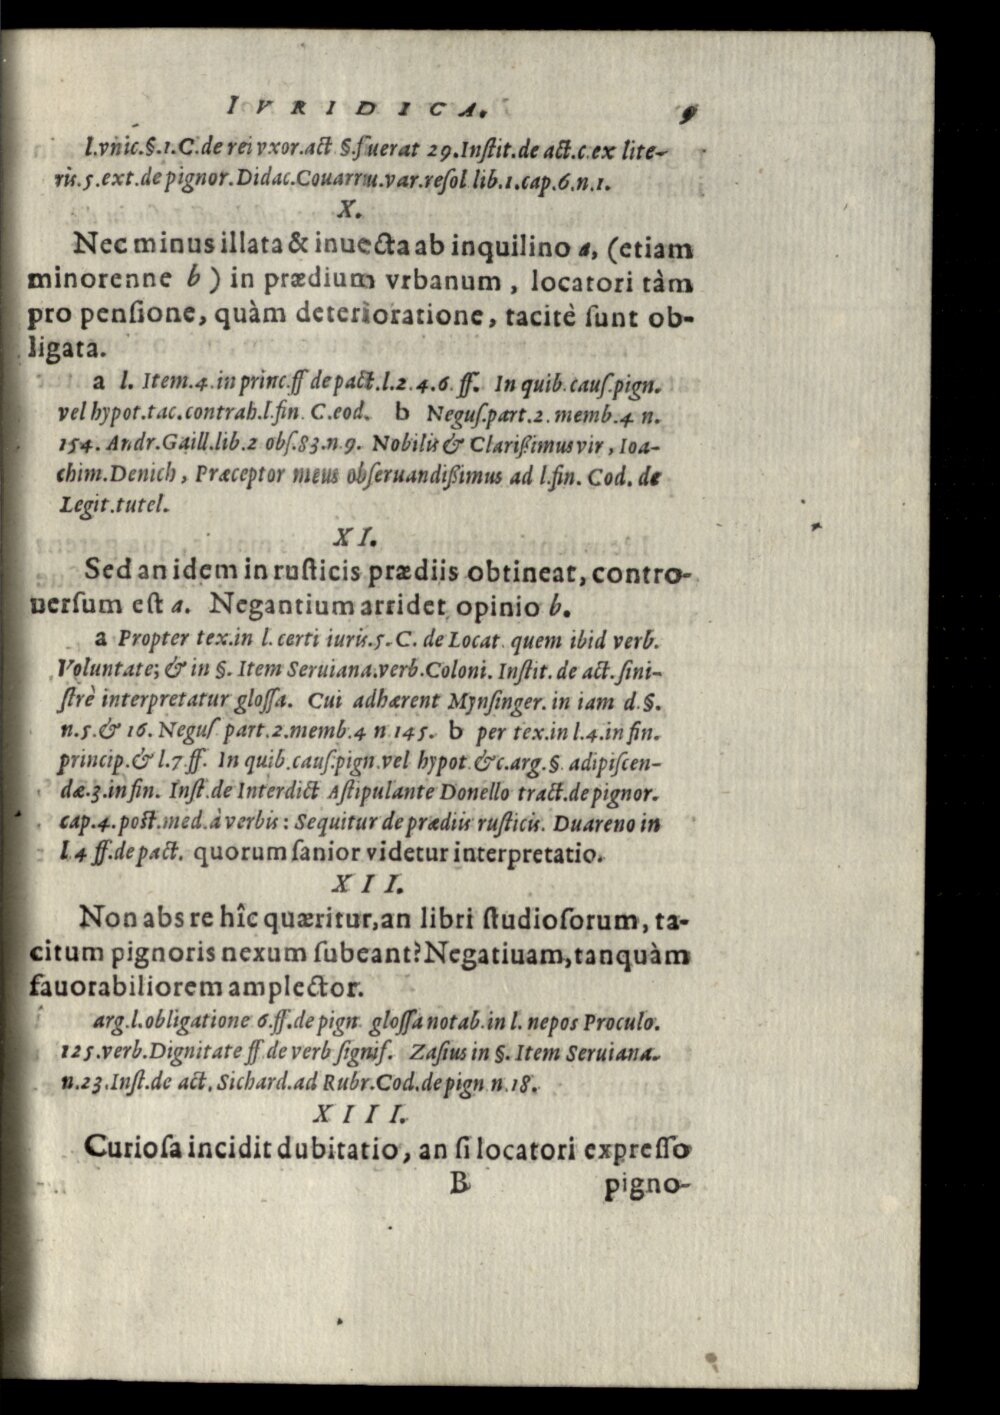 IVRIDICA. 9
l.vnic.§.1.C.de rei vxor.act §.fuerat 29.Instit.de act.c.ex lite-
ris.5.ext.de pignor.Didac.Couarru.var.resol lib.1.cap.6.n.1.
X.
Nec minus illata & inuecta ab inquilino a, (etiam
minorenne b ) in prædium vrbanum , locatori tàm
pro pensione, quàm deterioratione, tacitè sunt ob-
ligata.
a l. Item.4.in princ.ff de pact.l.2.4.6.ff. In quib.caus.pign.
vel hypot.tac.contrah.l.fin. C.eod. b Negus.part.2.memb.4 n.
154. Andr.Gaill.lib.2 obs.83.n.9. Nobilis & Clarißimus vir , Ioa-
chim.Denich , Præceptor meus obseruandißimus ad l.fin. Cod. de
Legit.tutel.
XI.
Sed an idem in rusticis prædiis obtineat, contro-
uersum est a. Negantium arridet opinio b.
a Propter tex.in l. certi iuris.5.C. de Locat. quem ibid verb.
Voluntate; & in §. Item Seruiana.verb.Coloni. Instit.de act.sini-
strè interpretatur glossa. Cui adhærent Mynsinger. in iam d.§.
n.5.& 16. Negus part.2.memb.4 n 145. b per tex.in l.4.in fin.
princip.& l.7 ff. In quib.caus.pign.vel hypot.&c.arg.§. adipiscen-
dæ.3.in fin. Inst.de Interdict Astipulante Donello tract.de pignor.
cap.4.post.med.à verbis : Sequitur de prædiis rusticis. Duareno in
l.4 ff.de pact. quorum sanior videtur interpretatio.
XII.
Non abs re hîc quæritur,an libri studiosorum, ta-
citum pignoris nexum subeant? Negatiuam, tanquàm
fauorabiliorem amplector.
arg.l.obligatione 6.ff.de pign. glossa notab.in l. nepos Proculo.
125.verb.Dignitate ff de verb signif. Zasius in §. Item Seruiana.
n.23.Inst.de act. Sichard.ad Rubr.Cod.de pign n.18.
XIII.
Curiosa incidit dubitatio, an si locatori expresso
B pigno-